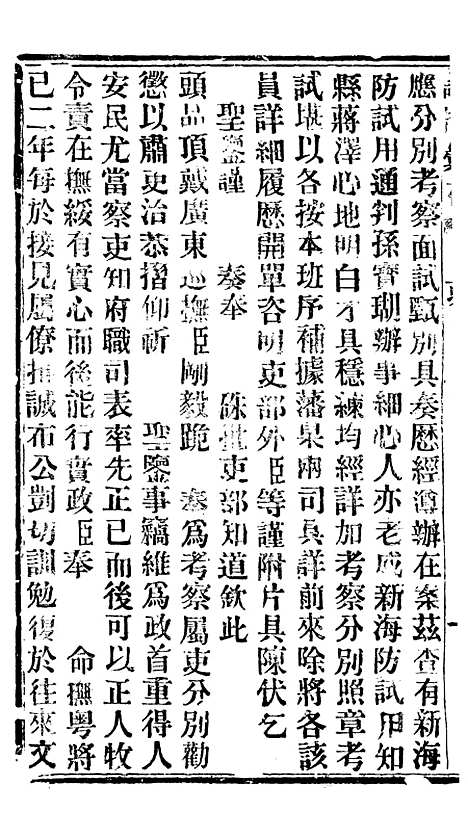 應分別考察面試甄別具奏歷經遵辦在案茲查有新海
防試用通判孫寶瑚辦事細心人亦老成新海防試用知
縣蔣澤心地明白才具穩練均經詳加考察分別照章考
試堪以各按本班序補據藩臬兩司具詳前來除將各該
員詳細履歷開單咨明吏部外臣等謹附片具陳伏乞
聖鑒謹 奏奉 硃批吏部知道欽此
頭品頂戴廣東巡撫臣剛毅跪 奏為考察屬吏分別勸
懲以肅吏治恭摺仰祈 聖鑒事竊維為政首重得人
安民尤當察吏知府職司表率先正已而後可以正人牧
令責在撫綏有實心而後能行實政臣奉 命撫粵將
已二年每於接見屬僚推誠布公剴切訓勉復於往來文